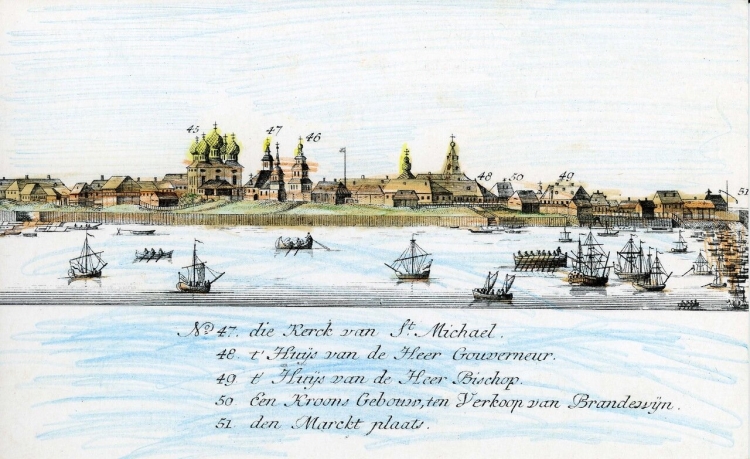 45 47 46
48 50 49 51
No 47. die Kerck van St. Michael.
48. t' Huÿs van de Heer Gouverneur.
49 t' Huÿs van de Heer Bischop.
50 Een Kroons Gebouw, ten Verkoop van Brandewÿn.
51. den Marckt plaats.